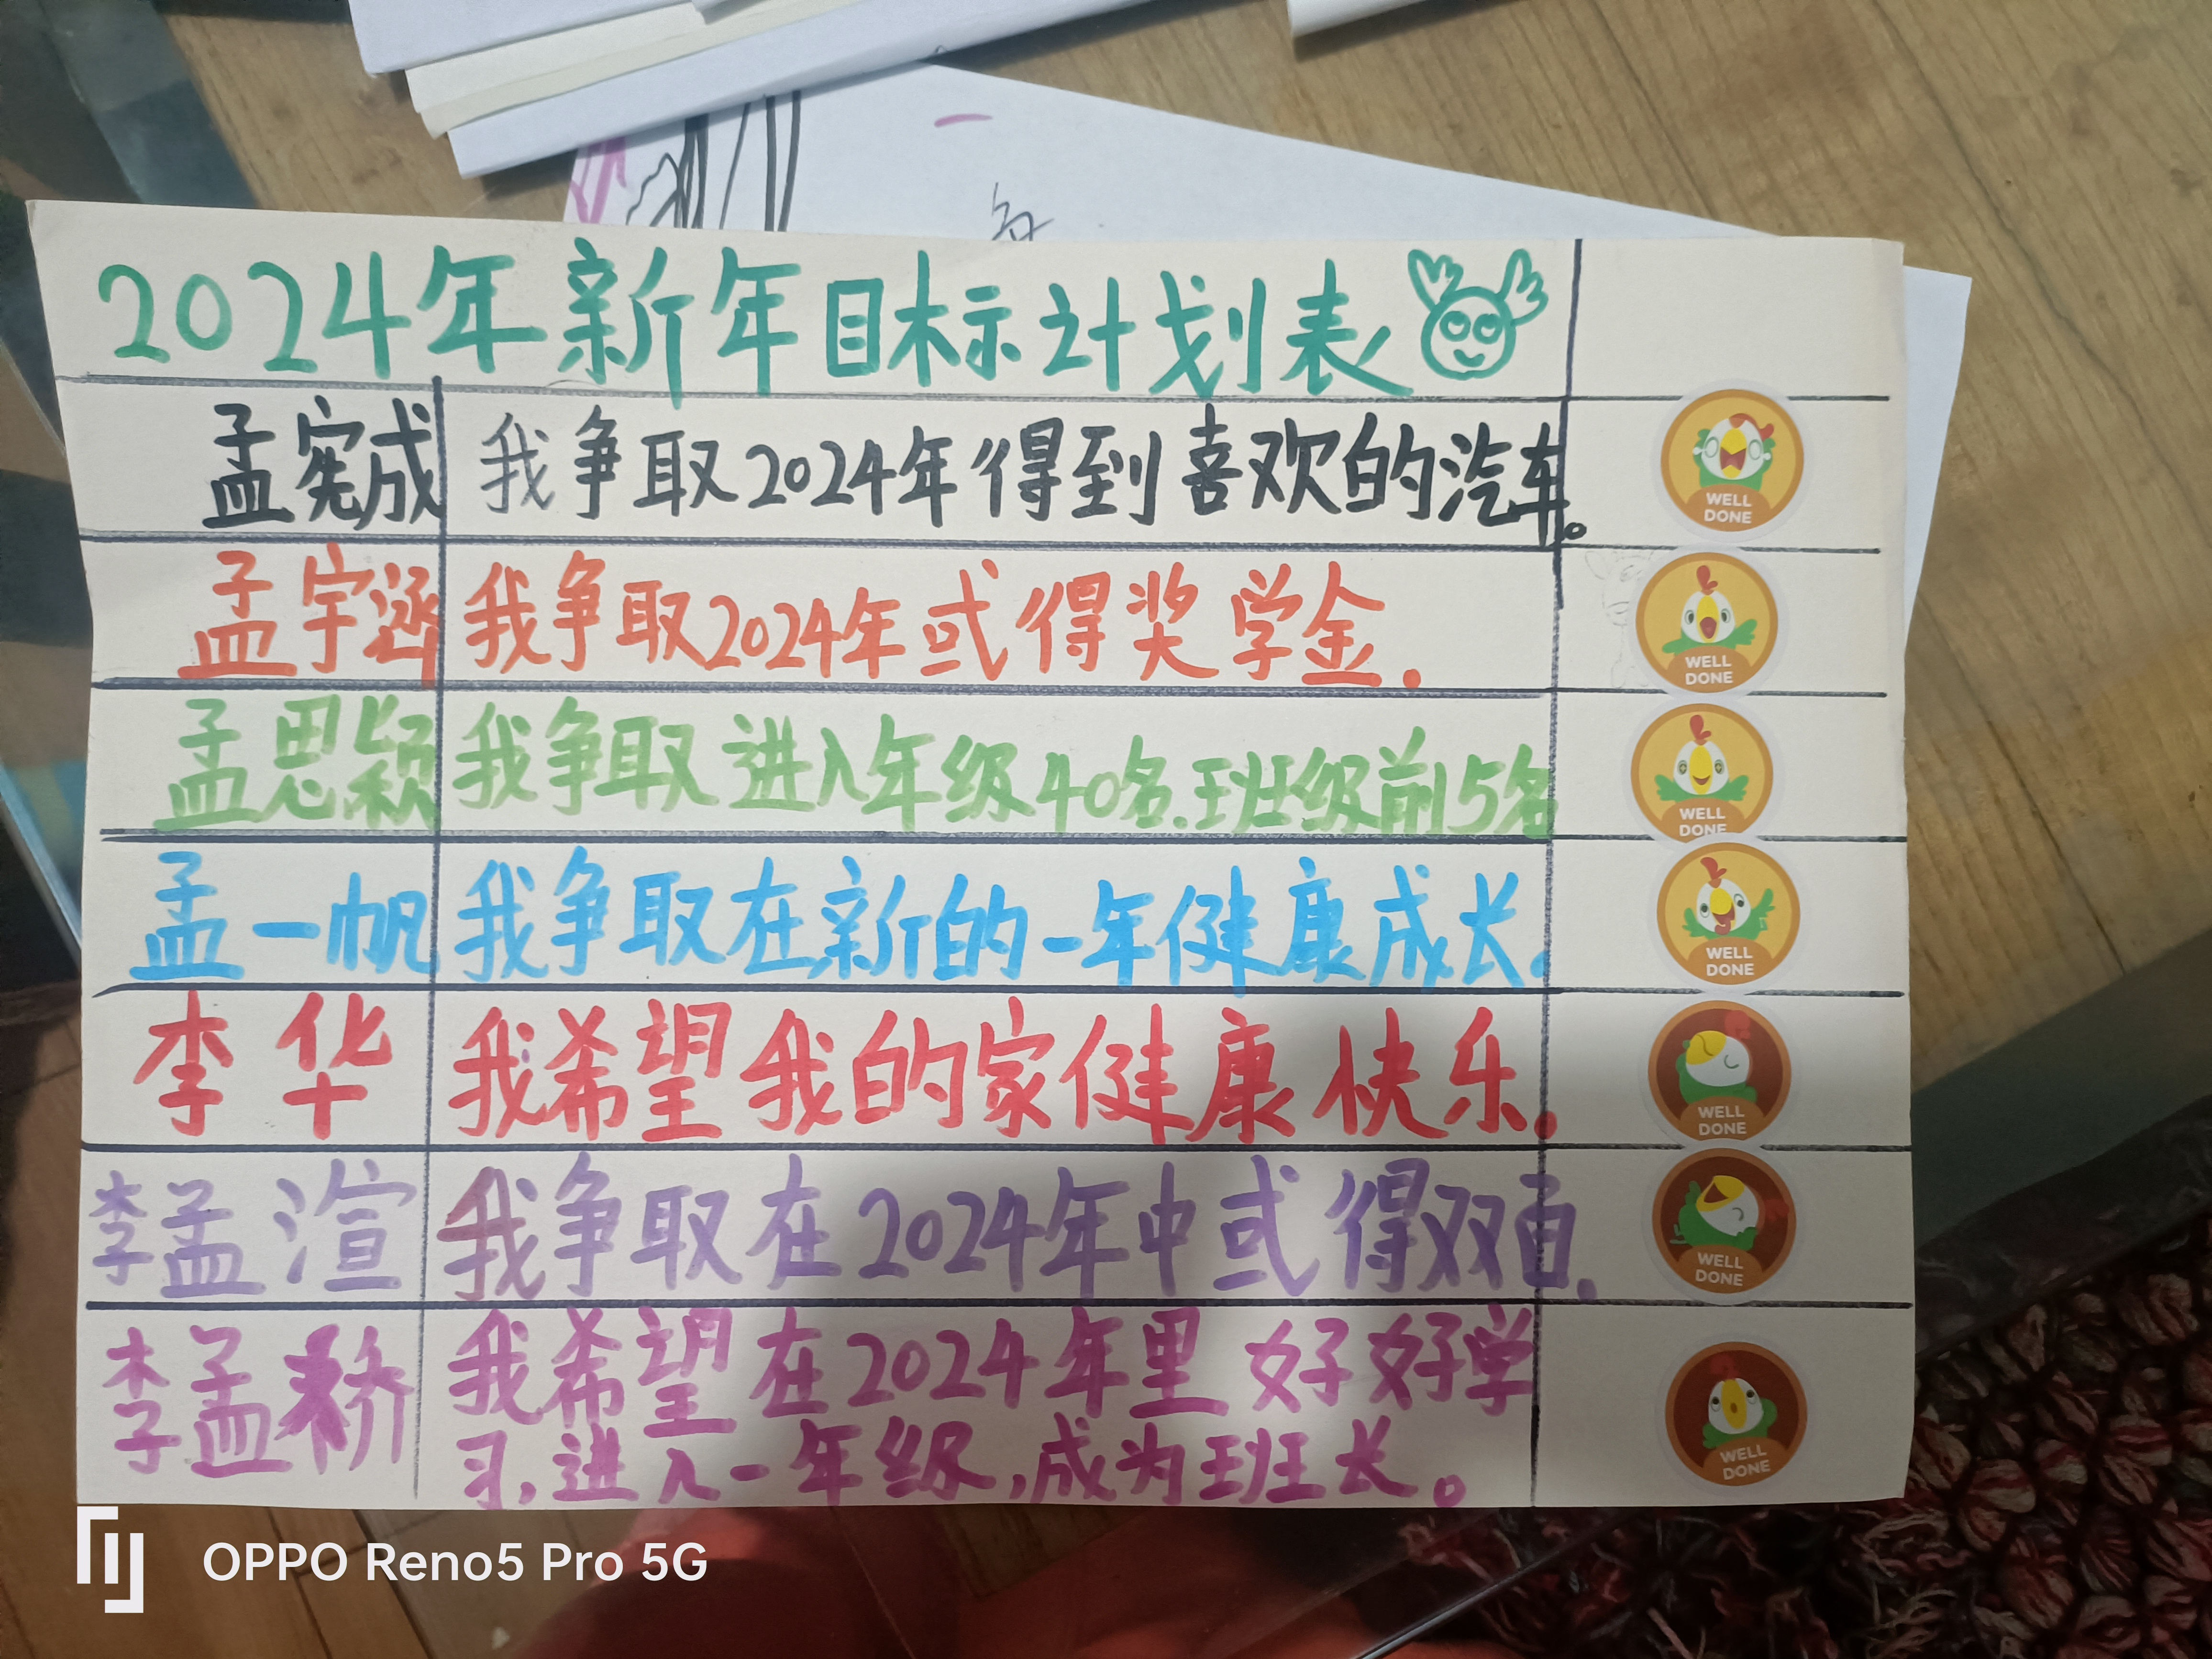 2024年新年目标计划表
孟宪成 我争取2024年得到喜欢的汽车。
WELL
DONE
孟宇涵 我争取2024年或得奖学金.
WELL
DONE
孟思颖 我争取进入年级40名.班级前5名
WELL
DONE
孟一帆 我争取在新的一年健康成长.
WELL
DONE
李华 我希望我的家健康快乐.
WELL
DONE
李孟渲 我争取在2024年中或得双百.
WELL
DONE
李孟 我希望在2024年里好好学
习,进入一年级,成为班长。
WELL
DONE
OPPO Reno5 Pro 5G